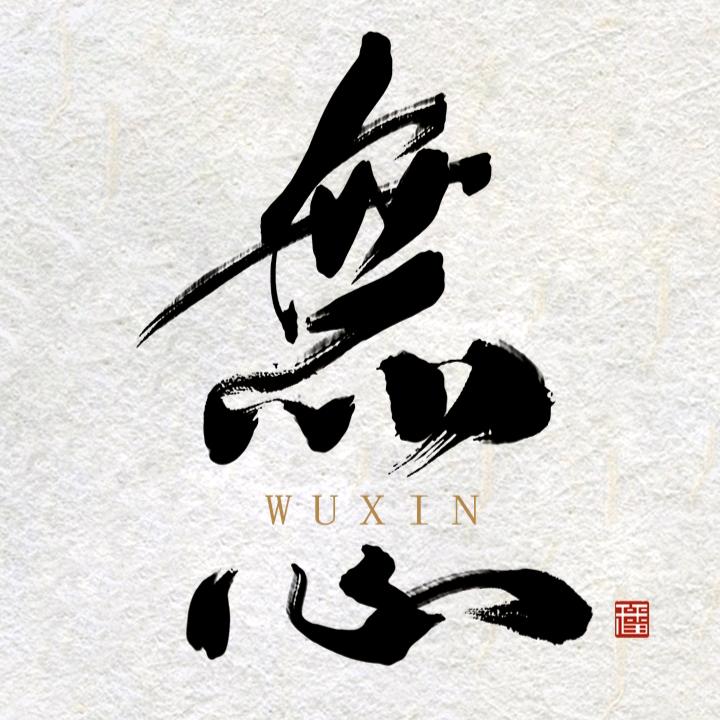 無
WUXIN
心